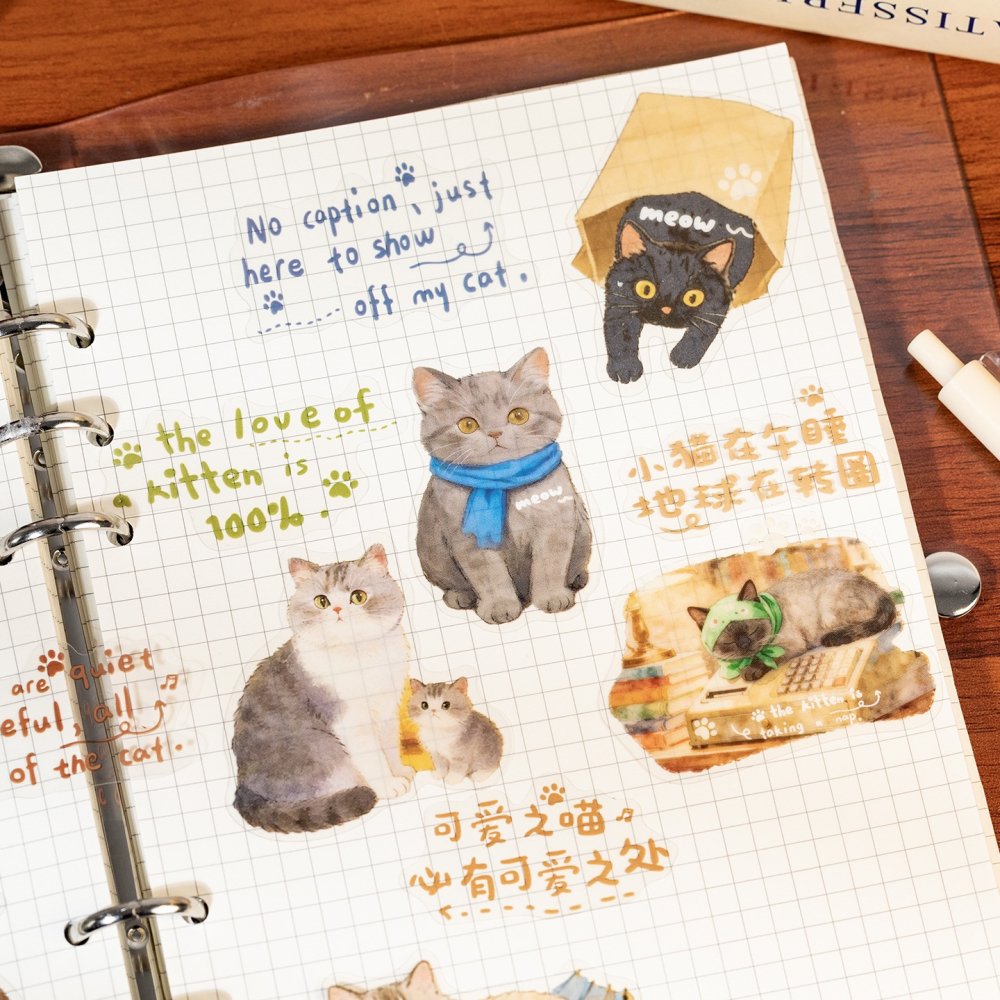 No caption, just
here to show
off my cat.
meow
the love of
a kitten is
100%.
meow
小猫在午睡
地球在转圈
the kitten is
taking a nap.
are quiet
eful, all
of the cat.
可爱之喵
必有可爱之处